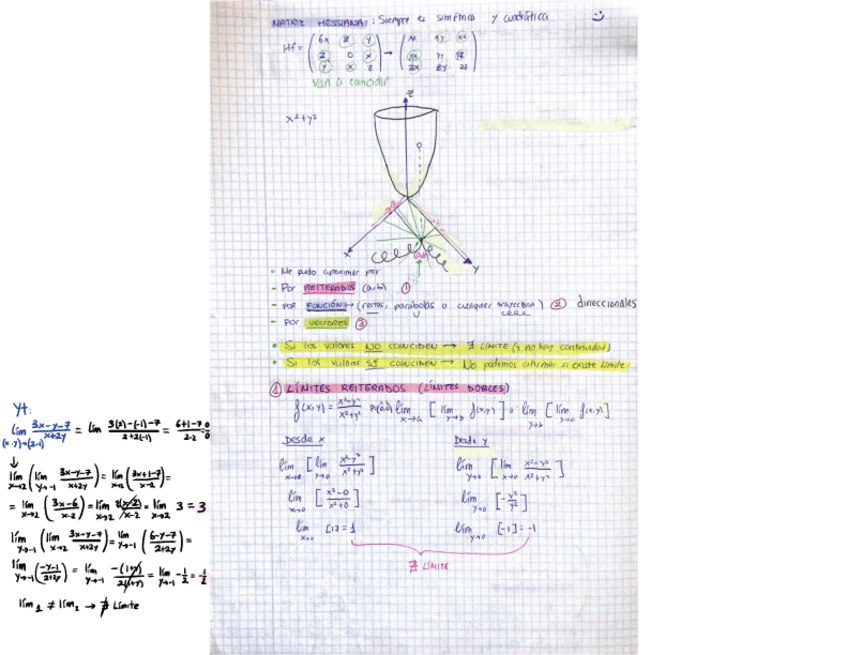 MATRIZ HESSIANA: Siempre es simétrica y cuadrática
Hf = (6x z y / z 0 x / y x z) → (xx xy xz / yx yy yz / zx zy zz)
van a coincidir
x²+y²
z
x
y
• Me puedo aproximar por
- Por REITERADOS (a,b) ①
- por FUNCIÓN → (rectas, parábolas o cualquier trayectoria) ② direccionales
- por VECTORES ③
• Si los valores NO COINCIDEN → ∄ LÍMITE (y no hay continuidad)
• Si los valores SI COINCIDEN → No podemos afirmar si existe límite
① LÍMITES REITERADOS (LÍMITES DOBLES)
f(x,y) = x²-y²/x²+y² P(0,0) lím x→a [lím y→b f(x,y)] o lím y→b [lím x→a f(x,y)]
Desde x
lím x→0 [lím y→0 x²-y²/x²+y²]
lím x→0 [x²-0/x²+0]
lím x→0 [1] = 1
Desde y
lím y→0 [lím x→0 x²-y²/x²+y²]
lím y→0 [-y²/y²]
lím y→0 [-1] = -1
∄ LÍMITE
YT:
lím (x,y)→(2,-1) 3x-y-7/x+2y = lím 3(2)-(-1)-7/2+2(-1) = 6+1-7/2-2 = 0/0
↓
lím x→2 (lím y→-1 3x-y-7/x+2y) = lím x→2 (3x+1-7/x-2) =
= lím x→2 (3x-6/x-2) = lím x→2 3(x-2)/x-2 = lím x→2 3 = 3
lím y→-1 (lím x→2 3x-y-7/x+2y) = lím y→-1 (6-y-7/2+2y) =
lím y→-1 (-y-1/2+2y) = lím y→-1 -(1+y)/2(1+y) = lím y→-1 -1/2 = -1/2
lím₁ ≠ lím₂ → ∄ Límite